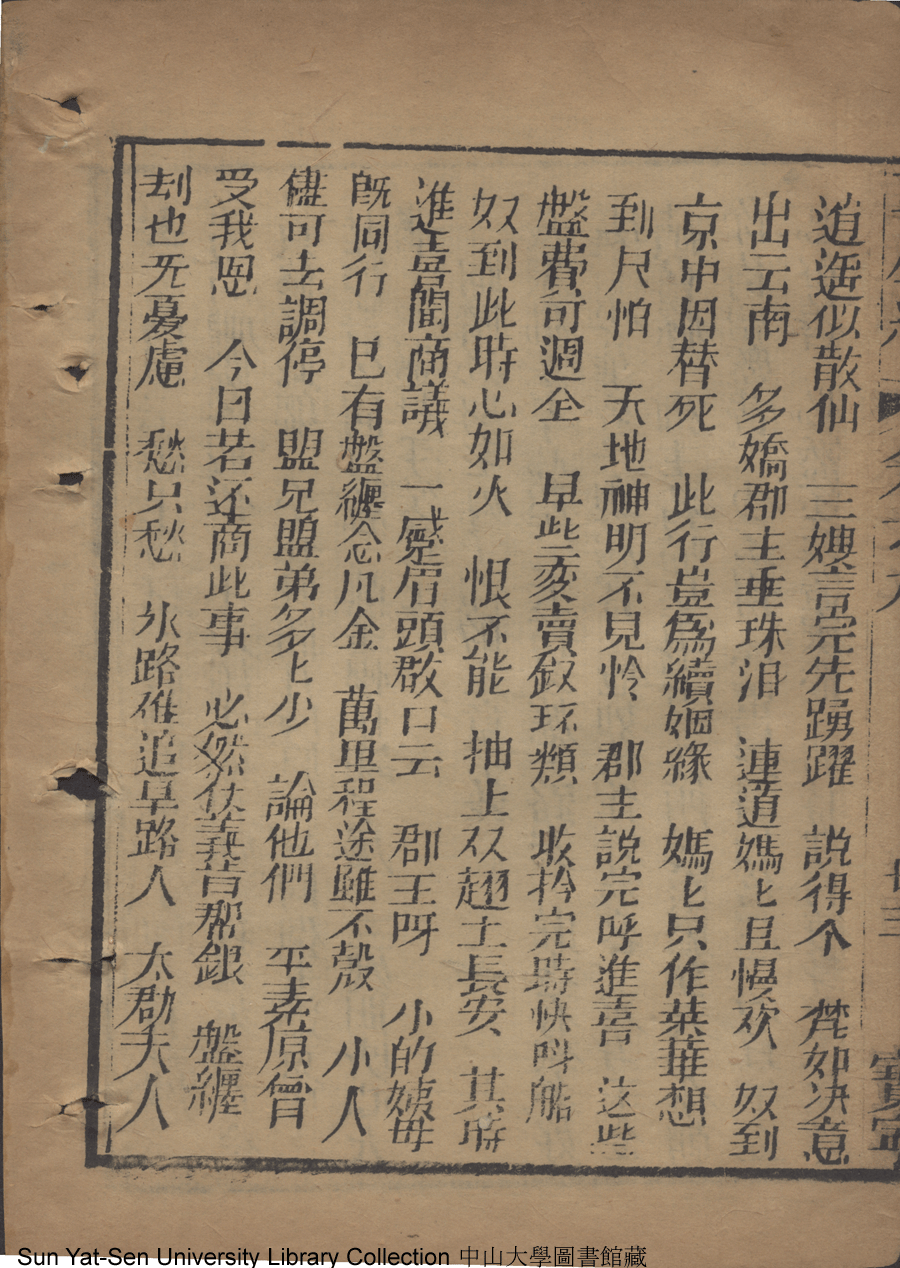 逍遥似散仙　三嫂言完先踴躍　説得个　梵如決意
出云南　多嬌郡主垂珠泪　連道媽匕且慢欢　奴到
京中因替死　此行豈爲續姻緣　媽匕只作榮華想
到尺怕　天地神明不見怜　郡主說完呼進喜　这些
盤費可週全　早些変賣釵环類　收拾完時快呌船
奴到此時心如火　恨不能　抽上双翅土長安　其時
進喜闻商議　一感眉頭啟口云　郡王呀　小的姨母
既同行　巳有盤纏念凡金　萬里程途雖不殻　小人
儘可去調停　盟兄盟弟多匕少　論他們　平素原曾
受我恩　今日若还商此事　必然仗義皆帮銀　盤纏
刦也无憂慮　愁只愁　水路难追旱路人　太郡夫人
Sun Yat-Sen University Library Collection 中山大學圖書館藏